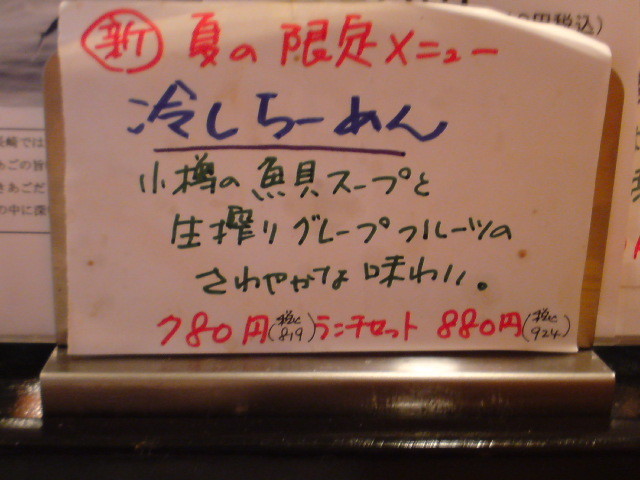 新 夏の限定メニュー
冷しらーめん
小樽の魚貝スープと
生搾りグレープフルーツの
さわやかな味わい。
780円(税込819) ランチセット 880円(税込924)
円税込)
長崎では
あごの旨
きあごだ
の中に深